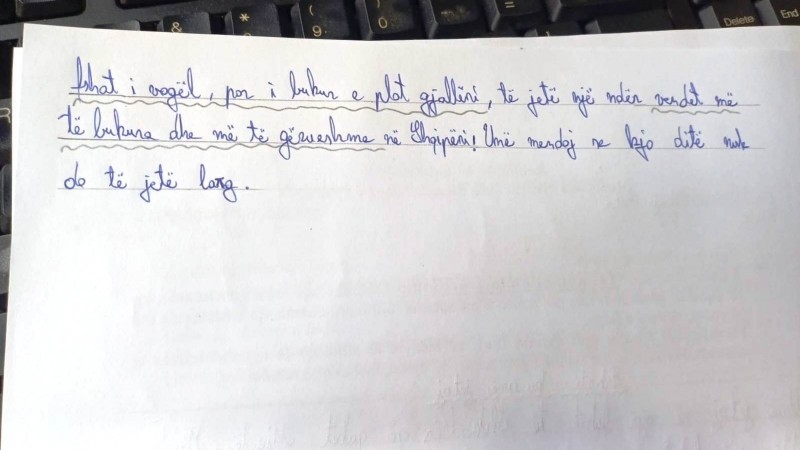 fshat i vogël, por i bukur e plot gjallëri, të jetë një ndër vendet më
të bukura dhe më të gërueshme në Shqipëri! Unë mendoj se kjo ditë nuk
do të jetë larg.